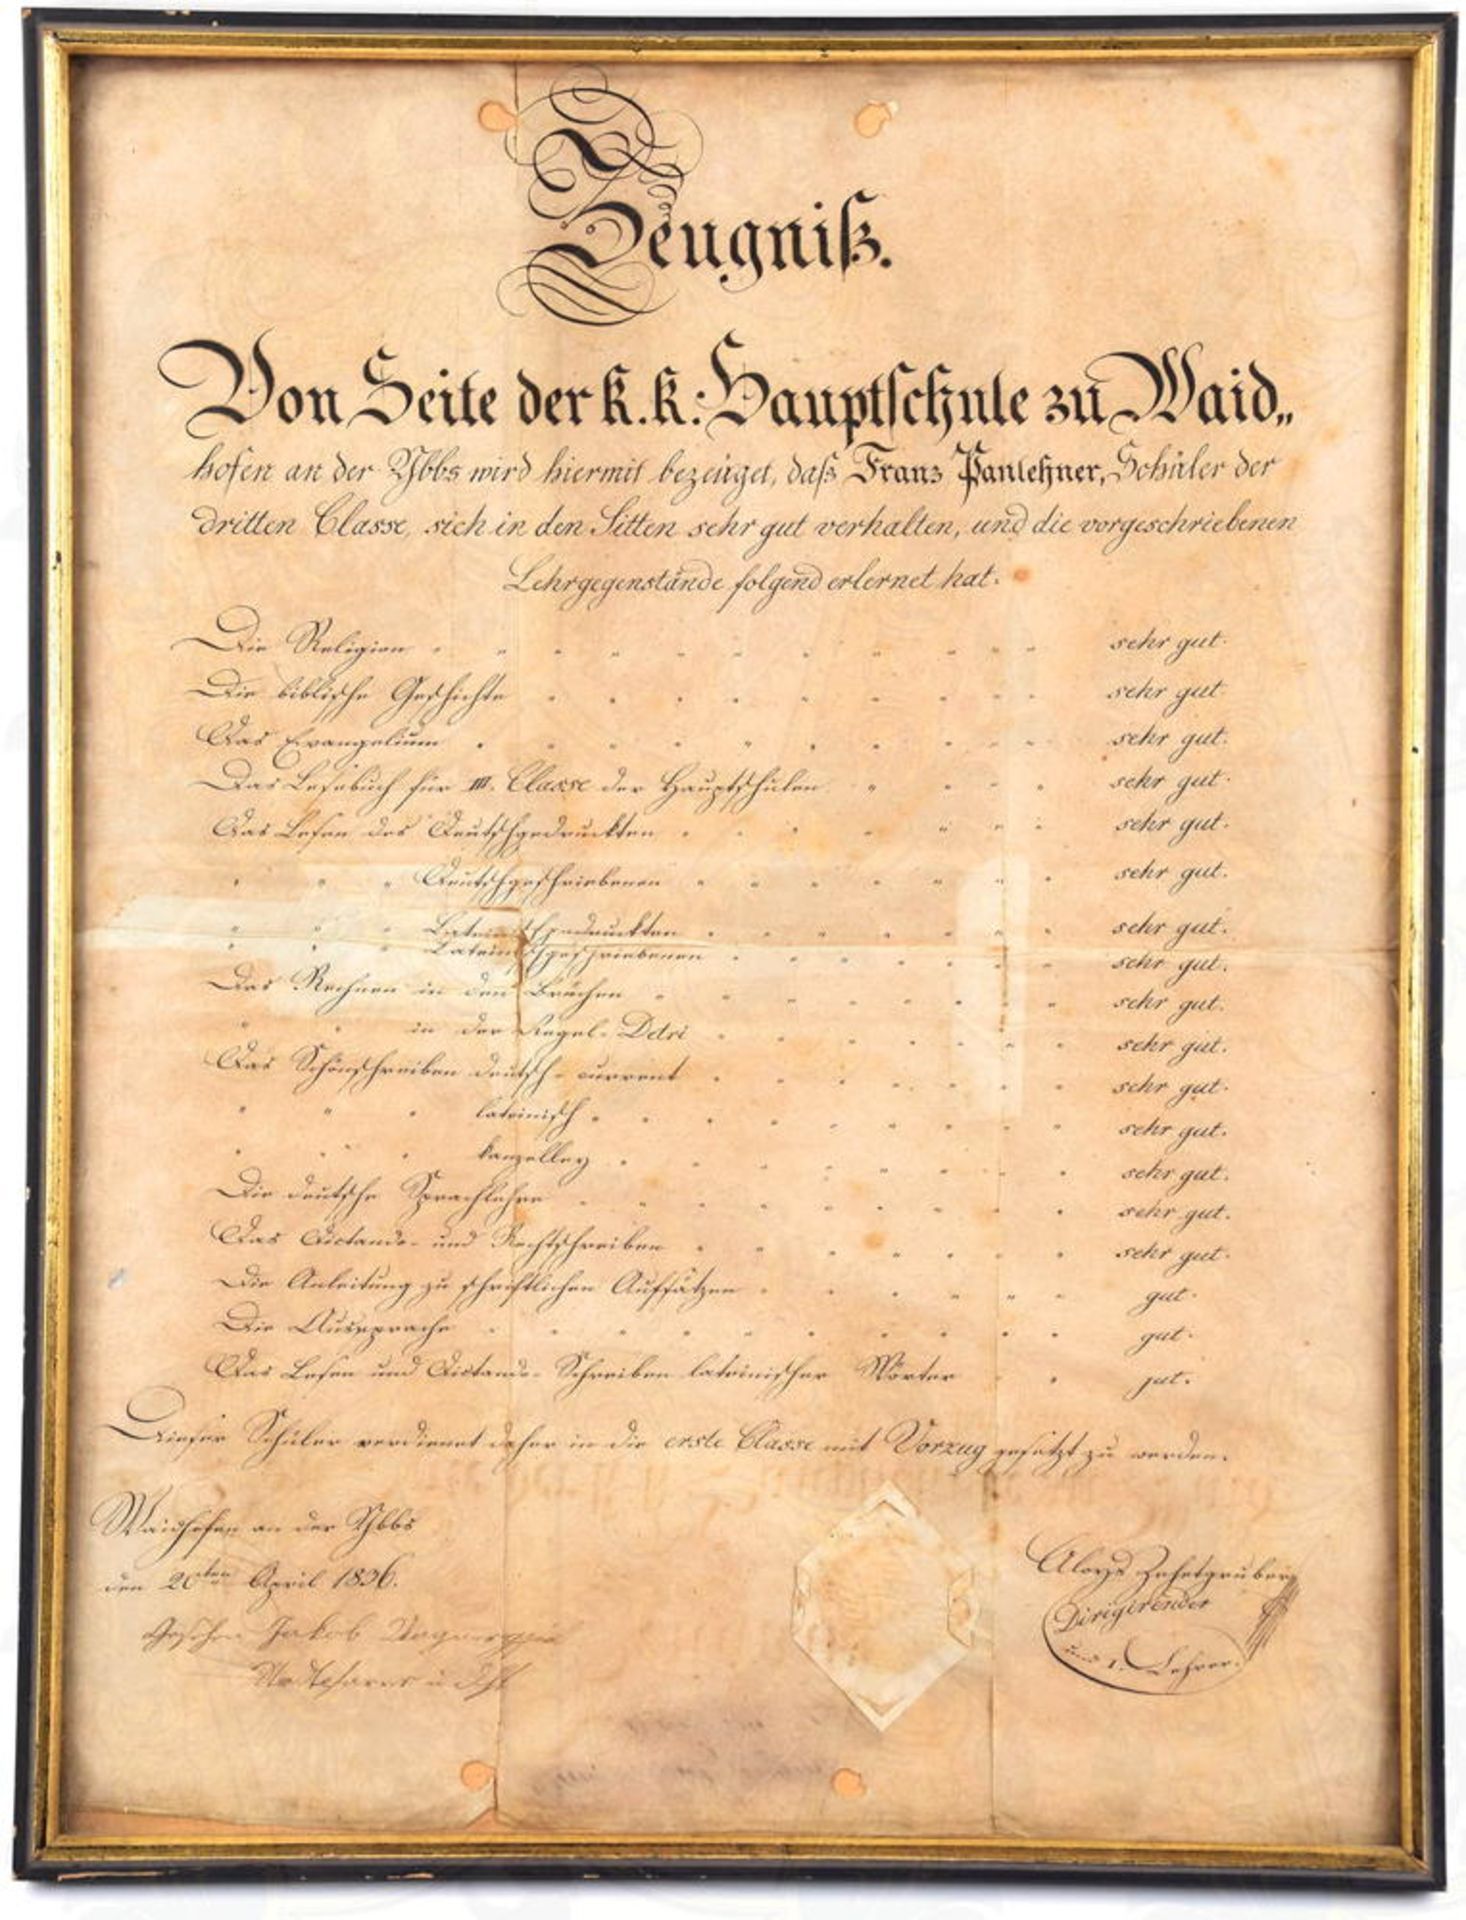 Zeugniß.
Von Seite der k. k.: Hauptschule zu Waid„
hofen an der Ybbs wird hiermit bezeuget, daß Franz Panlehner, Schüler der
dritten Classe, sich in den Sitten sehr gut verhalten, und die vorgeschriebenen
Lehrgegenstände folgend erlernet hat.
Die Religion " " " " " " " " " " sehr gut.
Die biblische Geschichte " " " " " " " " sehr gut.
Das Evangelium " " " " " " " " " sehr gut.
Das Lesebuch für III. Classe der Hauptschulen " " " " sehr gut.
Das Lesen des Deutschgedruckten " " " " " " " sehr gut.
" " " Deutschgeschriebenen " " " " " " " sehr gut.
" " " Lateinischgedruckten " " " " " " " sehr gut.
" " " Lateinischgeschriebenen " " " " " " sehr gut.
Das Rechnen in den Brüchen " " " " " " " sehr gut.
" " in der Regel-Detri " " " " " " sehr gut.
Das Schönschreiben deutsch-current " " " " " " sehr gut.
" " " lateinisch " " " " " " " " sehr gut.
" " " kanzelley " " " " " " " sehr gut.
Die deutsche Sprachlehre " " " " " " " " sehr gut.
Das Dictando- und Rechtschreiben " " " " " " sehr gut.
Die Anleitung zu schriftlichen Aufsätzen " " " " " gut.
Die Aussprache " " " " " " " " " gut.
Das Lesen und Dictando-Schreiben lateinischer Wörter " " gut.
Dieser Schüler verdienet daher in die erste Classe mit Vorzug gesetzt zu werden.
Waidhofen an der Ybbs
den 20ten April 1836.
Gesehen Jakob
Aloys Zehetgruber
Dirigirender
und 1. Lehrer.